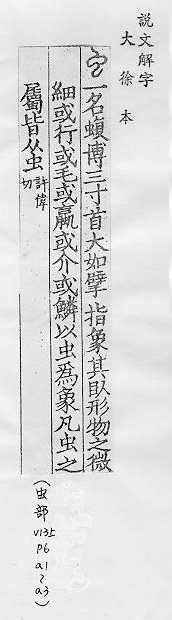 説文解字
大徐本
虫一名蝮博三寸首大如擘指象其臥形物之微
細或行或毛或蠃或介或鱗以虫為象凡虫之
屬皆从虫許偉切
(虫部
V13上
P6
a1
~
a3)